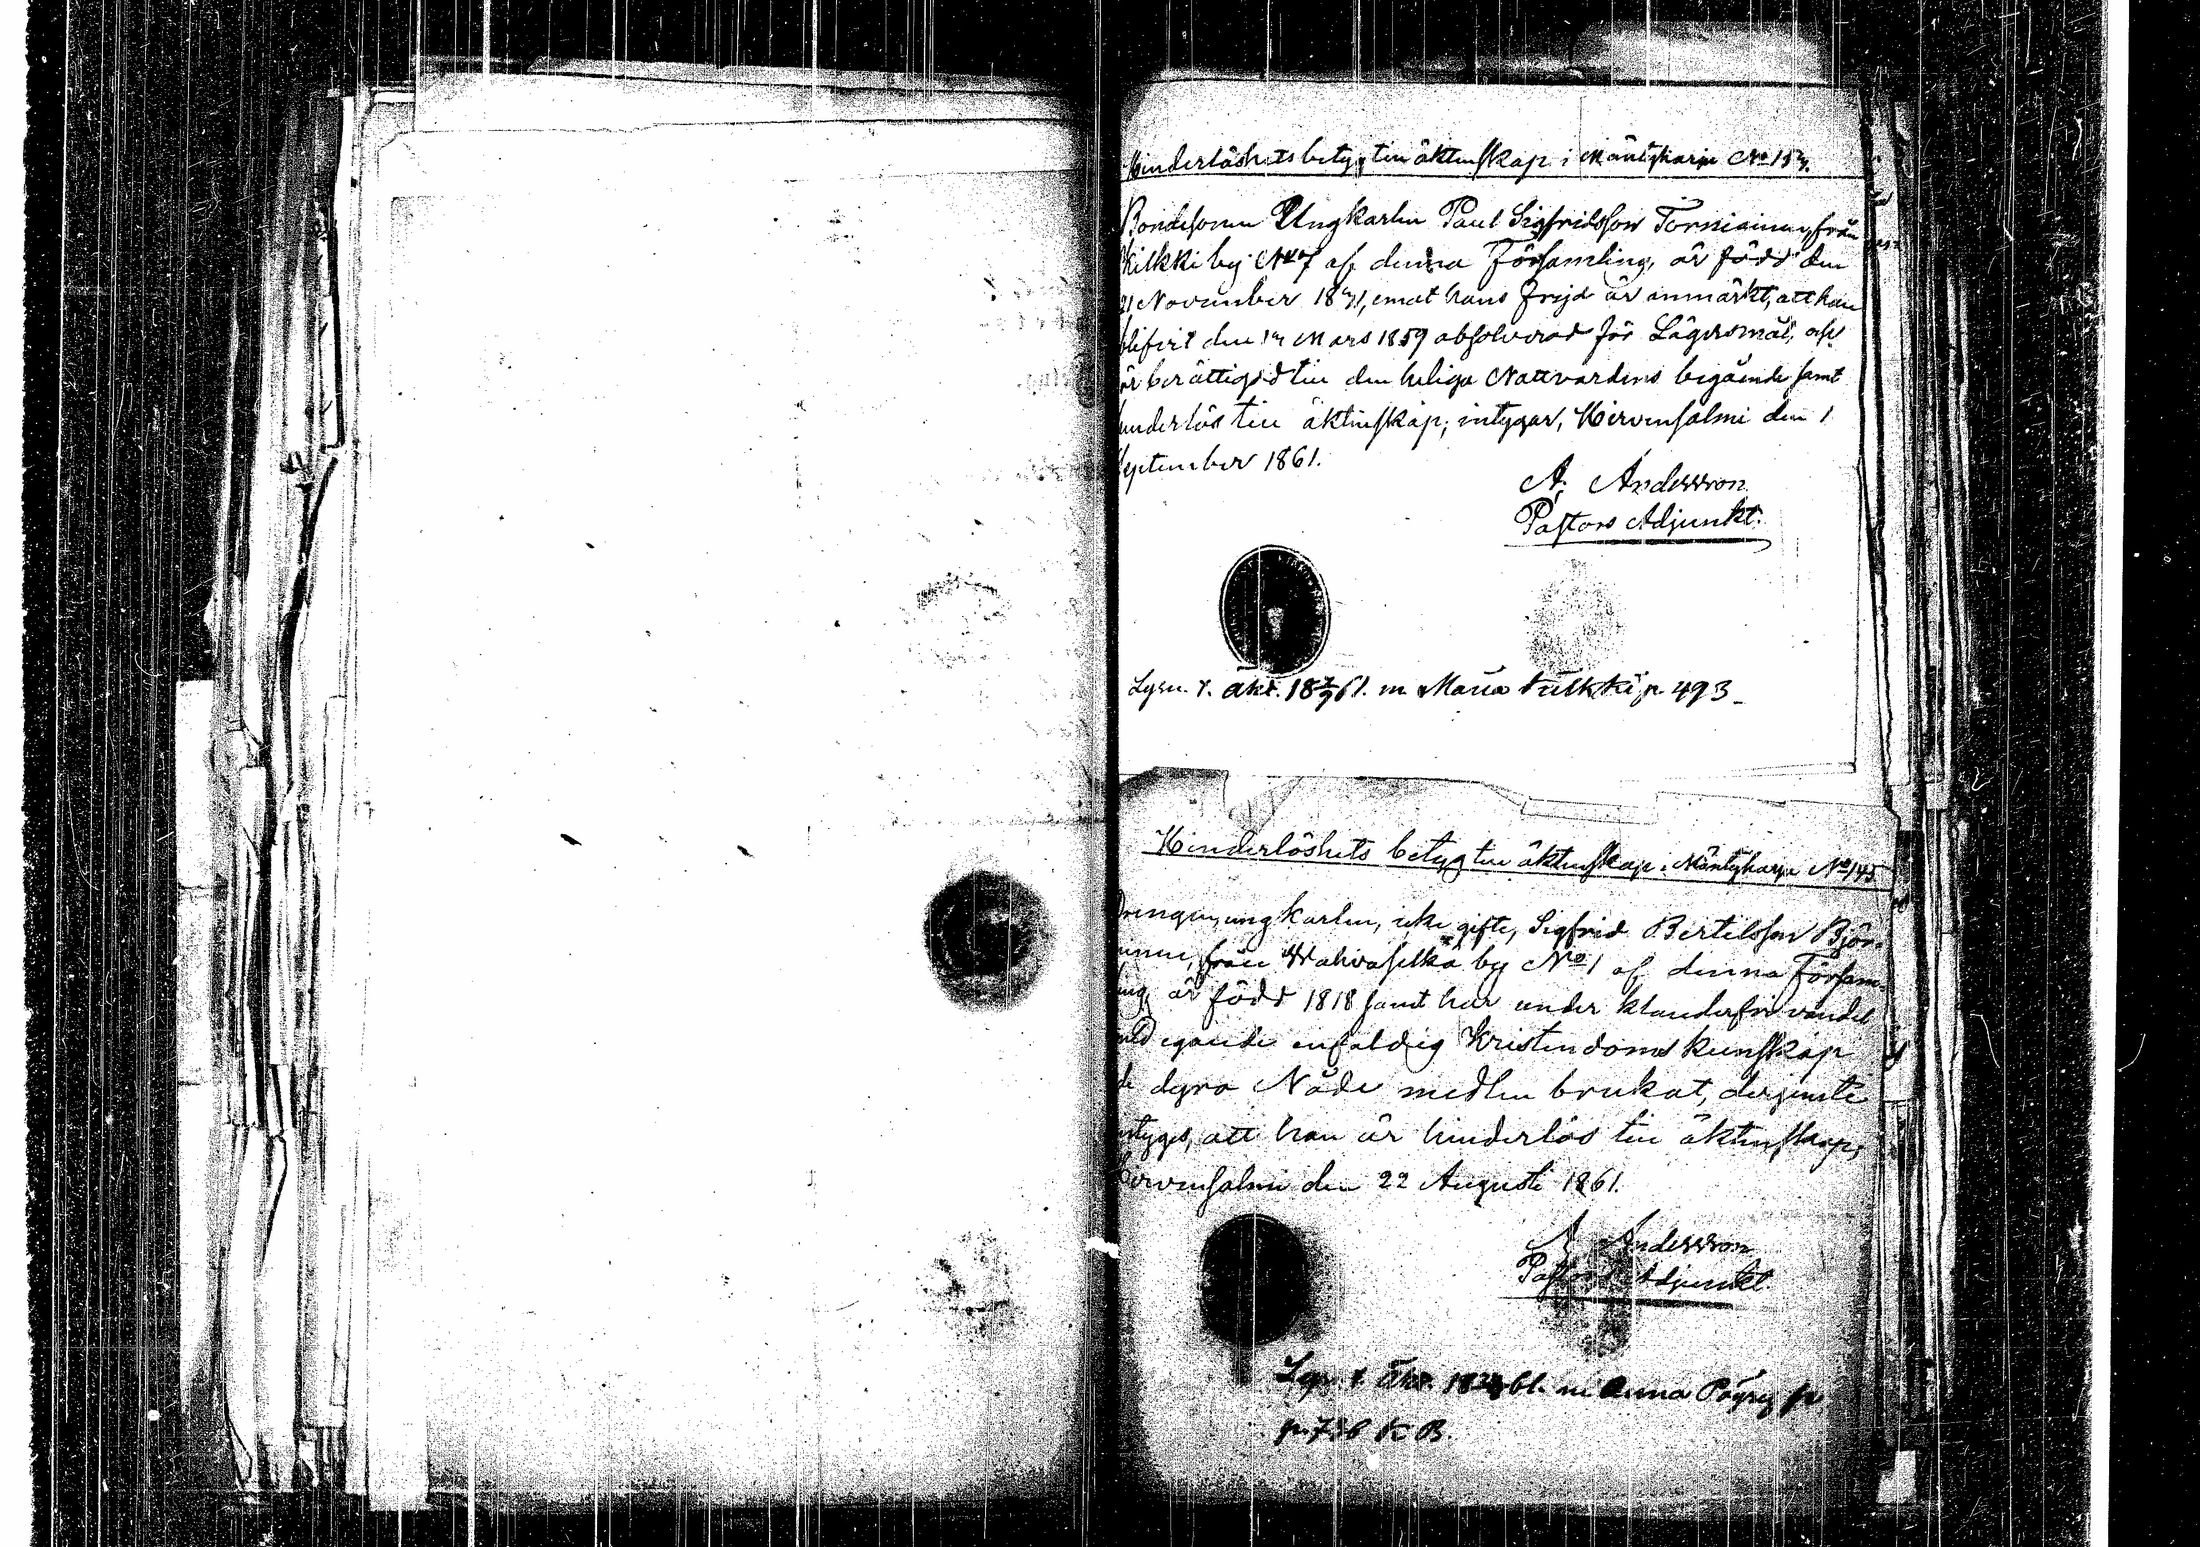 Hinderlöshets betyg till äktenskap i Mäntyharju No 157.
Bondesonen Ungkarlen Paul Sigfridsson Torniainen från
Kilkki by No 7 af denna Församling, är född den
21 November 1841, emot hans frejd är anmärkt, att han
blifvit den 14 Mars 1859 absolverad för Lägersmål, och
är berättigad till den heliga Nattvardens begående samt
hinderlös till äktenskap; intygar, Hirvensalmi den 1
September 1861.
A. Andersson
Pastors Adjunkt.
Lysn. t. äkt. 61. m Maria p. 493
Hinderlöshets betyg till äktenskap i Mäntyharju No 145
Drengen, ungkarlen, icke gifte, Sigfrid Bertilsson Björ-
ninen, från Wahvaselkä by No 1 af denna Försam-
ling, är född 1818 samt har under klanderfri vandel
med egande enfaldig Kristendoms kunskap
de dyra Nåde medlen brukat, derjemte
intygas, att han är hinderlös till äktenskap;
Hirvensalmi den 22 Augusti 1861.
A. Andersson
Pastors Adjunkt.
Lysn. t. äkt. 61. m Anna Pöyry
p. 736 K B.